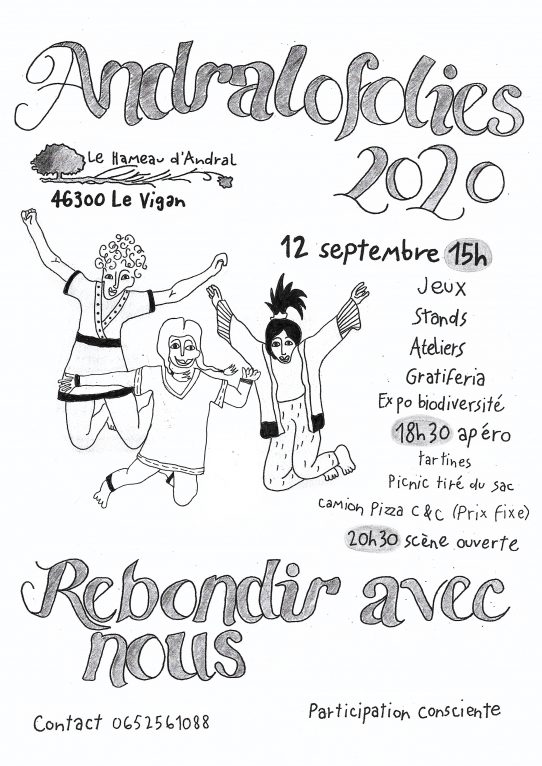 Andralofolies
2020
Le Hameau d'Andral
46300 Le Vigan
12 septembre 15h
Jeux
Stands
Ateliers
Gratiferia
Expo biodiversité
18h30 apéro
tartines
Picnic tiré du sac
Camion Pizza C & C (Prix fixe)
20h30 scène ouverte
Rebondir avec
nous
Contact 0652561088
Participation consciente